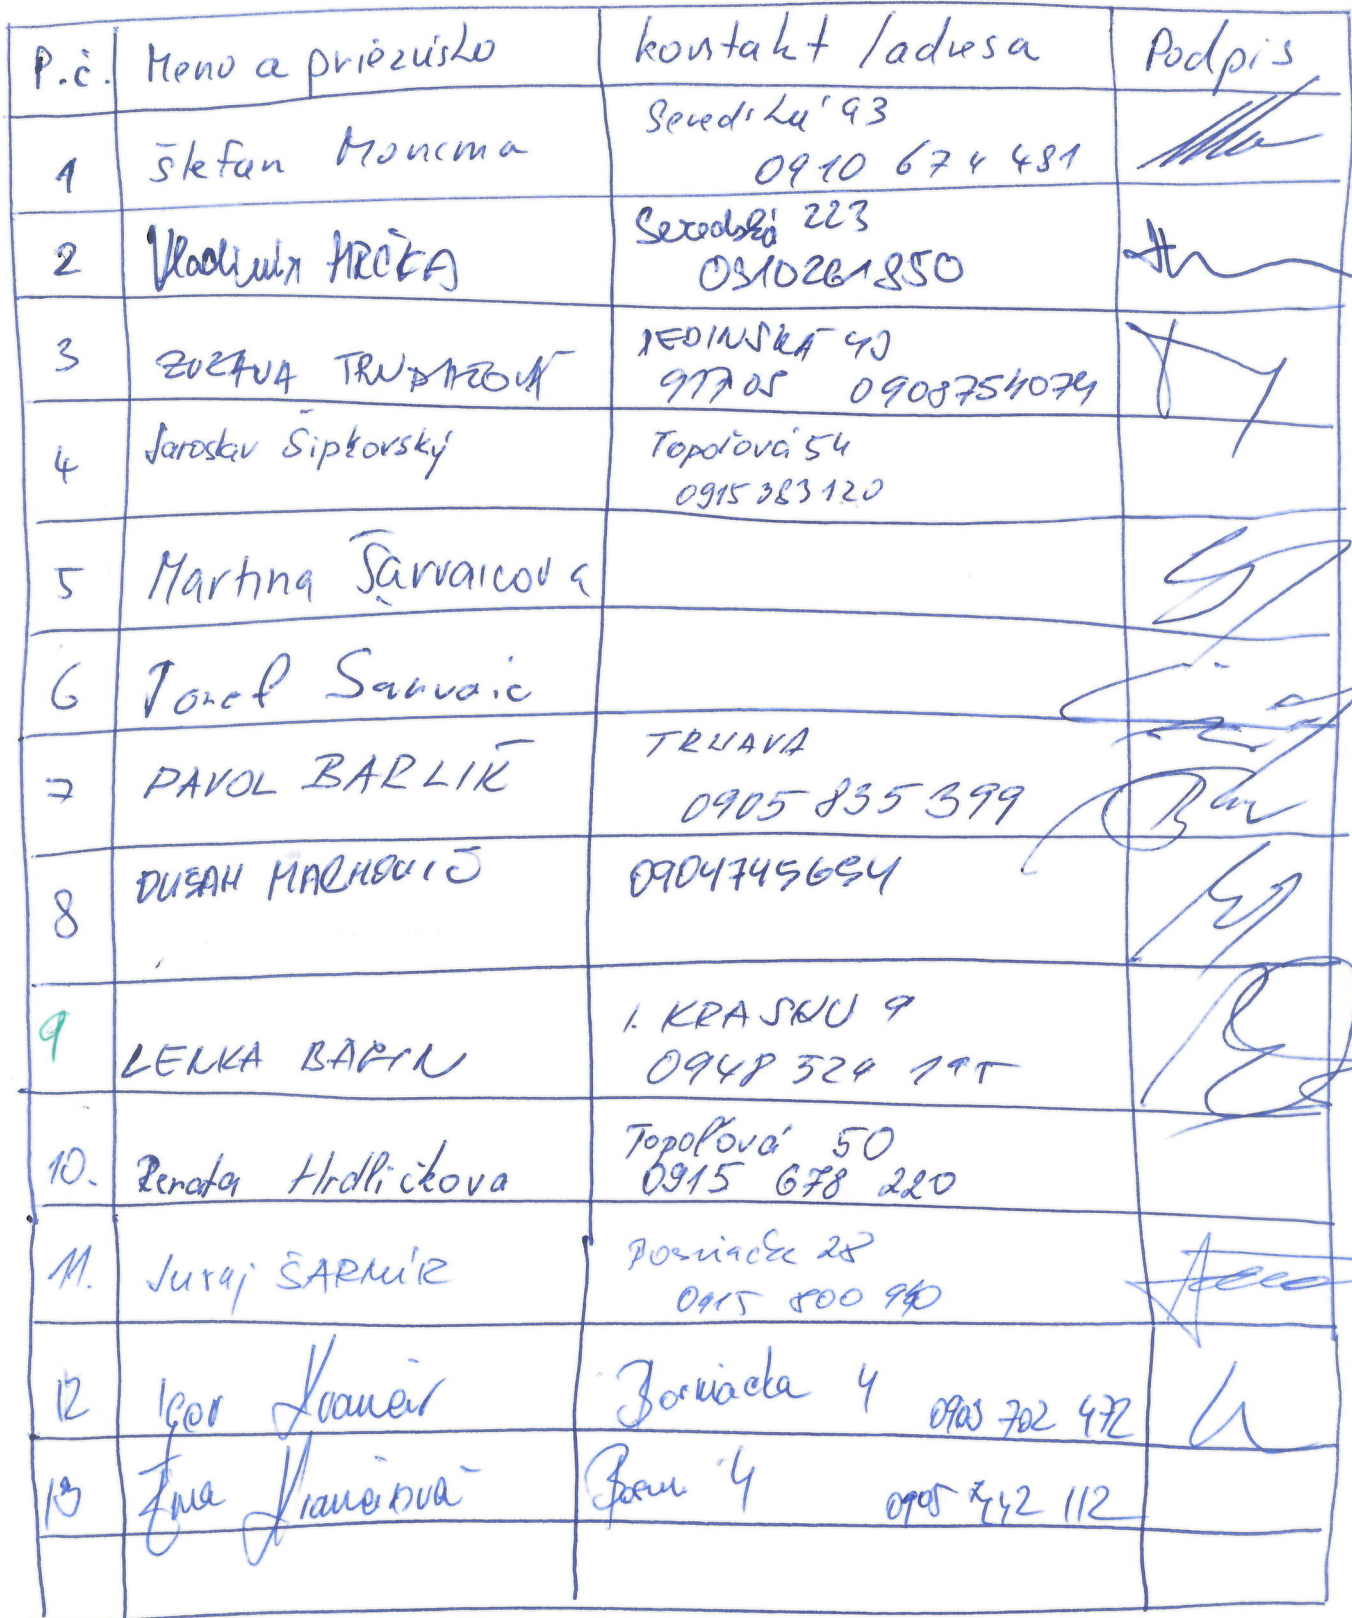 P.č. Meno a priezvisko kontakt /adresa Podpis
1 Štefan Seredská 93
0910 674 481
2 Vladimír HRČKA Seredská 223
0910261850
3 ZUZANA 49
917 05 0908754074
4 Jaroslav Šipkovský Topoľová 54
0915 383 120
5 Martina Šarvaicova
6 Jozef Sarvaic
7 PAVOL BARLÍK TRNAVA
0905 835 399
8 DUŠAN 0904745654
9 LENKA J. KRASKU 9
0948 524
10. Renata Hrdličkova Topoľová 50
0915 678 220
11. Juraj ŠARMÍR Bosniacka 28
0915 800
12 Igor Bosniacka 4 0903 702 472
13 4 0905 442 112